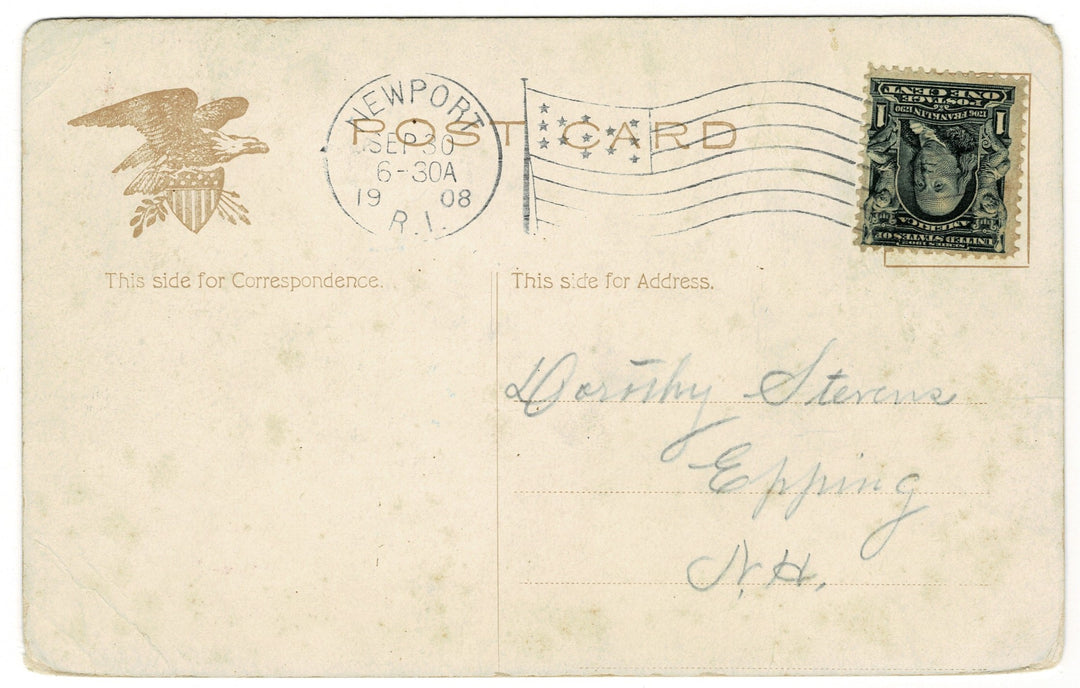 POST CARD
NEWPORT
SEP 30
6-30A
19 08
R.I.
SERIES 1902
UNITED STATES OF
AMERICA
1706 FRANKLIN 1790
1 POSTAGE 1
ONE CENT
This side for Correspondence.
This side for Address.
Dorothy Stevens
Epping
N.H.